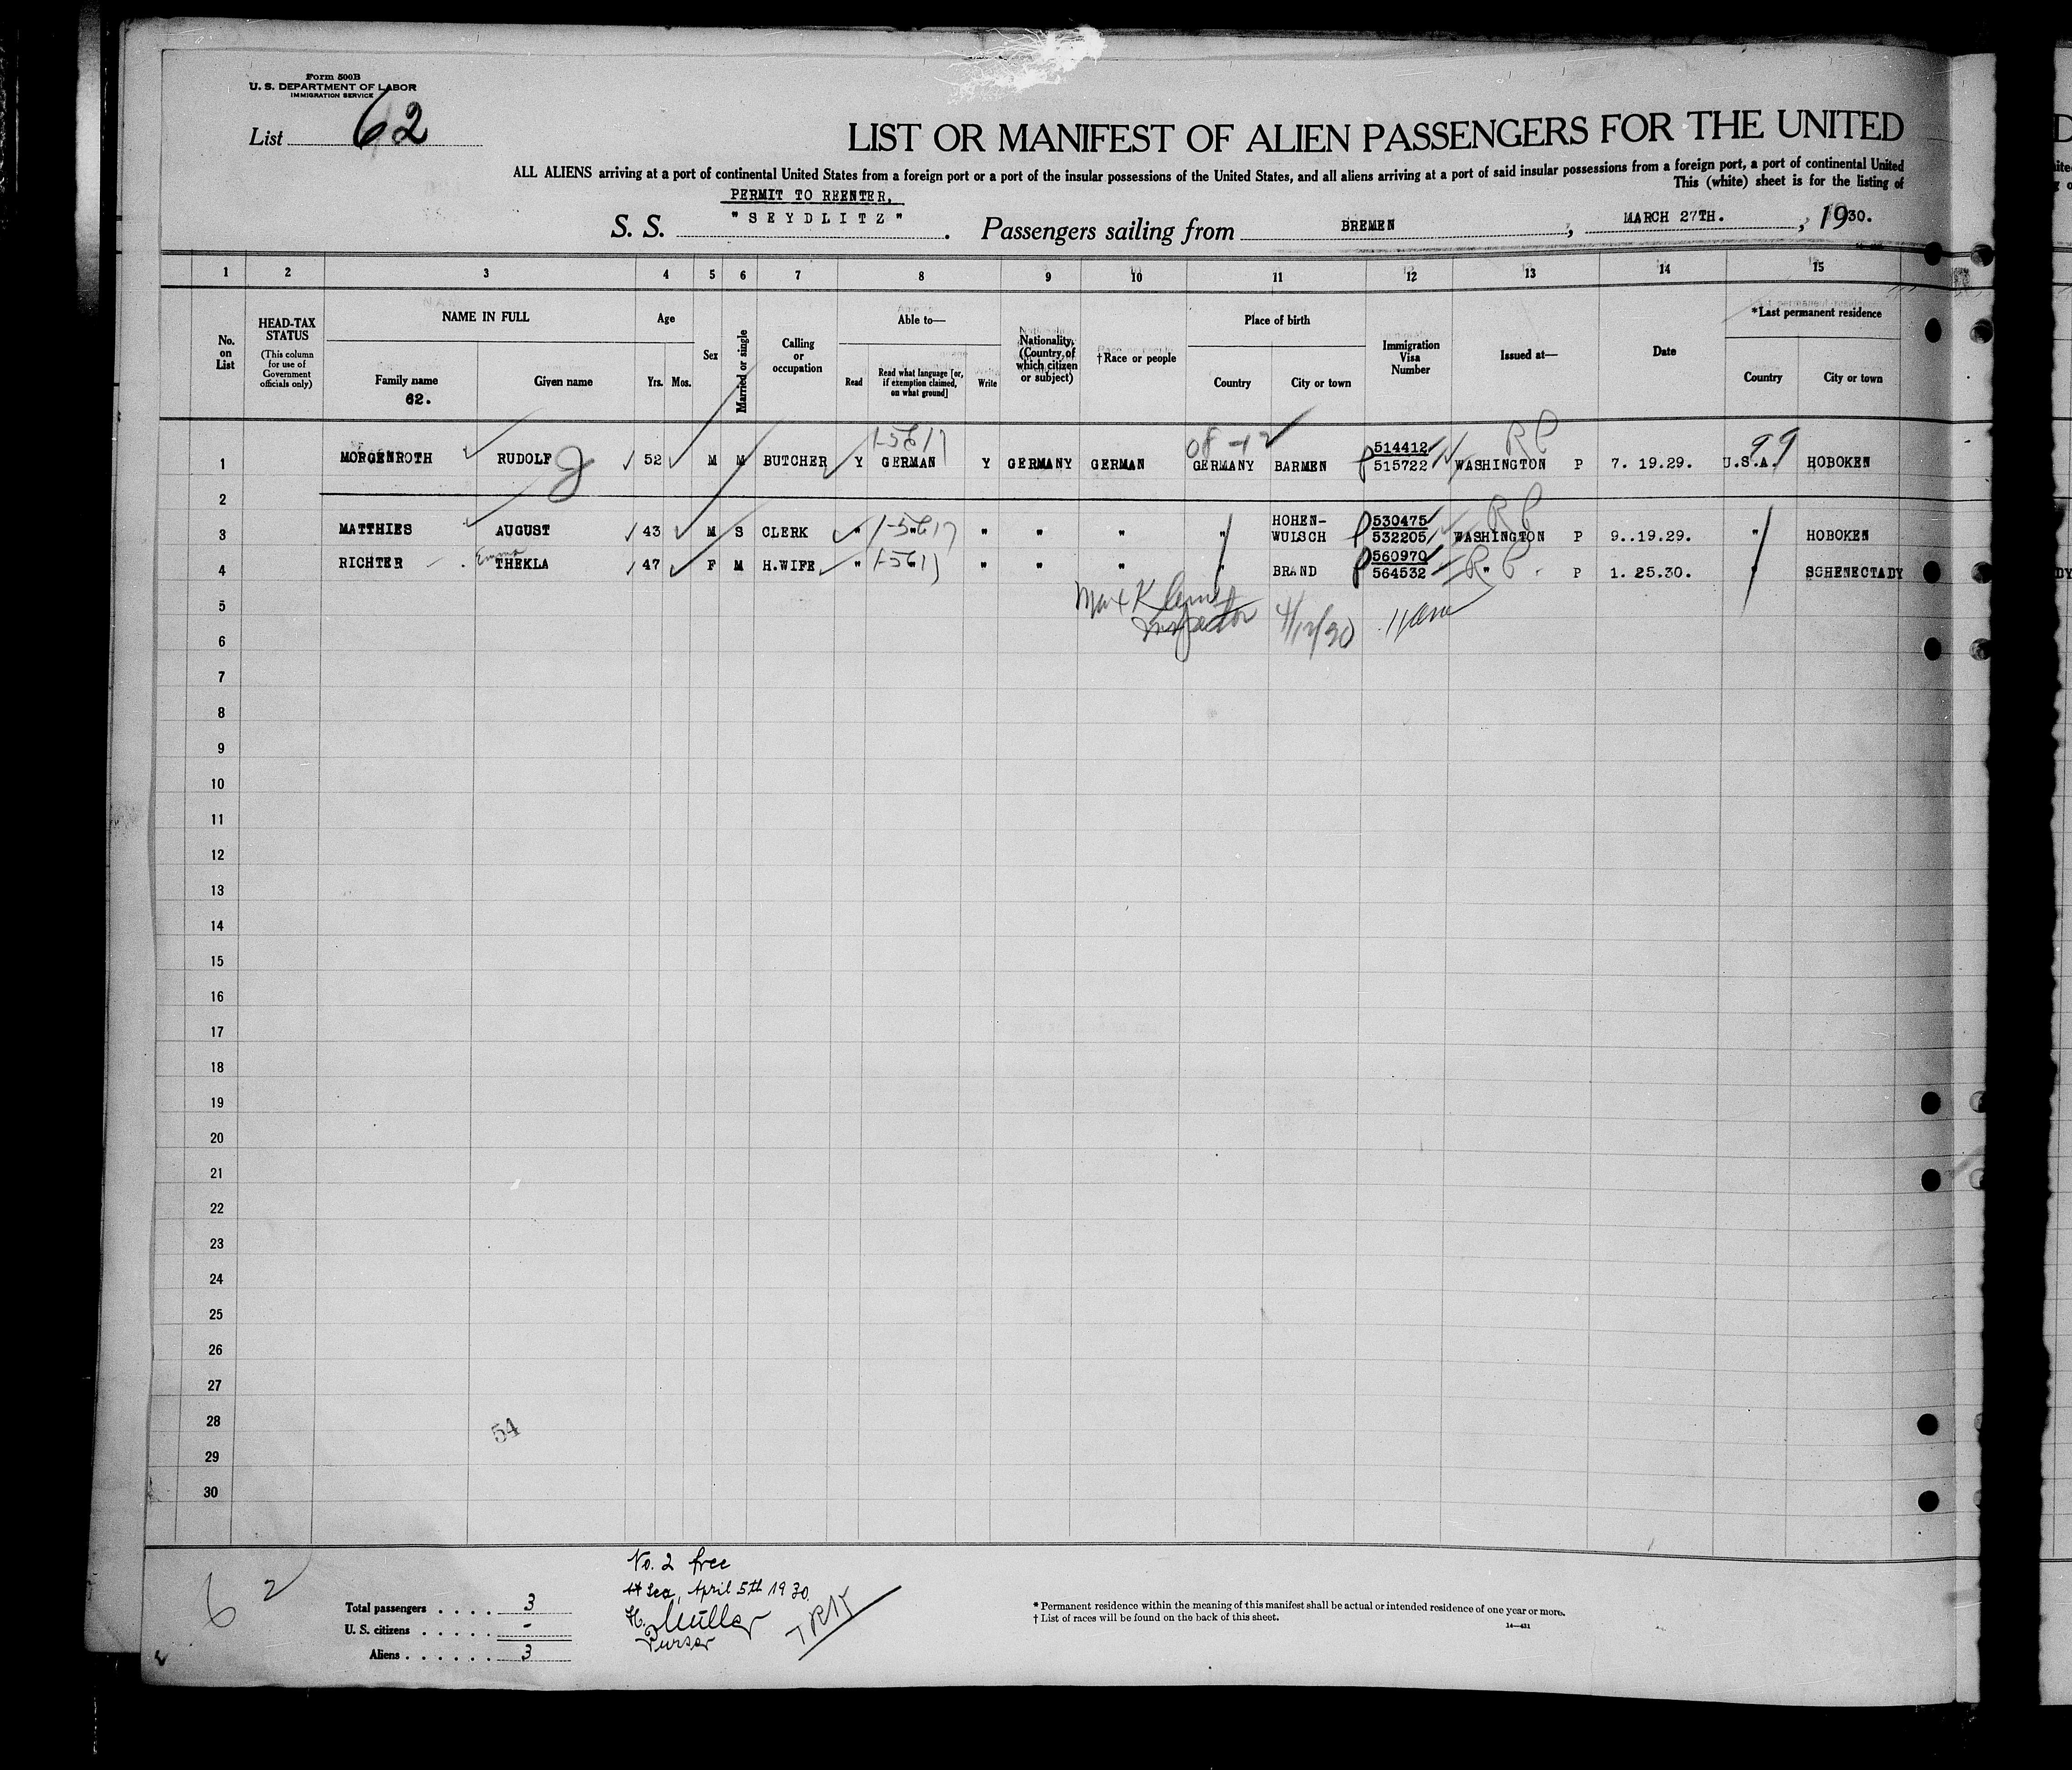 Form 500B
U. S. DEPARTMENT OF LABOR
IMMIGRATION SERVICE
List 62
LIST OR MANIFEST OF ALIEN PASSENGERS FOR THE UNITED
ALL ALIENS arriving at a port of continental United States from a foreign port or a port of the insular possessions of the United States, and all aliens arriving at a port of said insular possessions from a foreign port, a port of continental United
This (white) sheet is for the listing of
PERMIT TO REENTER.
S. S. "SEYDLITZ". Passengers sailing from BREMEN, MARCH 27TH., 1930.
1 2 3 4 5 6 7 8 9 10 11 12 13 14 15
No. on List
HEAD-TAX STATUS
(This column for use of Government officials only)
NAME IN FULL
Family name
62.
Given name
Age
Yrs. Mos.
Sex
Married or single
Calling or occupation
Able to—
Read
Read what language [or, if exemption claimed, on what ground]
Write
Nationality. (Country of which citizen or subject)
†Race or people
Place of birth
Country
City or town
Immigration Visa Number
Issued at—
Date
*Last permanent residence
Country
City or town
1-5617 08-12 RP 99
1 MORGENROTH RUDOLF 52 M M BUTCHER Y GERMAN Y GERMANY GERMAN GERMANY BARMEN 514412 515722 WASHINGTON P 7. 19.29. U.S.A. HOBOKEN
2
3 MATTHIES AUGUST 43 M S CLERK " 1-5617 " " " " HOHEN-WULSCH 530475 532205 WASHINGTON RP P 9..19.29. " HOBOKEN
4 RICHTER Emma THEKLA 47 F M H.WIFE " 1-5617 " " " " BRAND 560970 564532 " RP P 1. 25.30. " SCHENECTADY
5
Inspector 4/12/30
6
7
8
9
10
11
12
13
14
15
16
17
18
19
20
21
22
23
24
25
26
27
28
54
29
30
62
Total passengers . . . . 3
U. S. citizens . . . . . -
Aliens . . . . . . 3
No. 2 free
At Sea, April 5th 1930.
H. Müller
Purser
* Permanent residence within the meaning of this manifest shall be actual or intended residence of one year or more.
† List of races will be found on the back of this sheet.
14—431